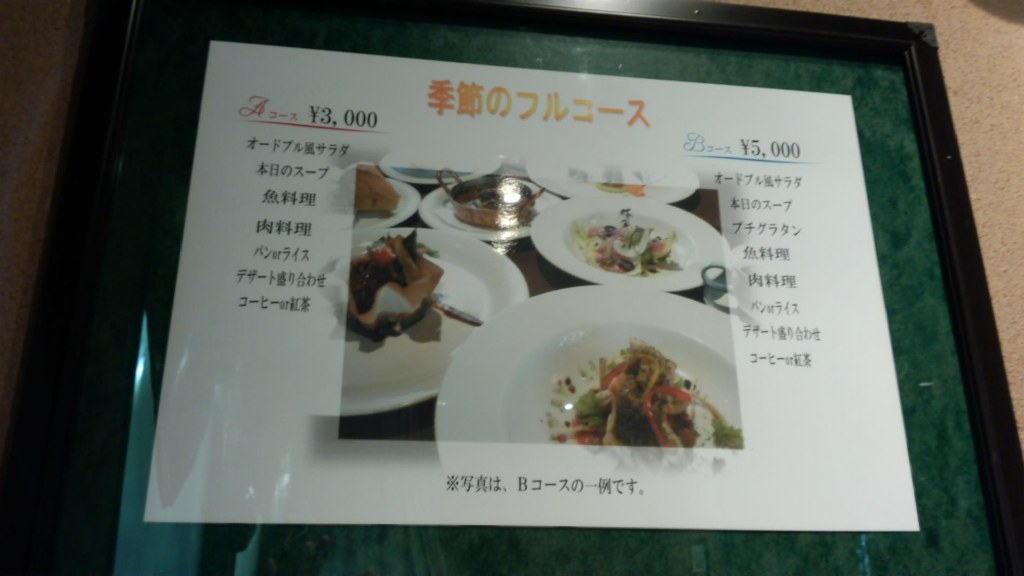 季節のフルコース
Aコース ¥3,000
オードブル風サラダ
本日のスープ
魚料理
肉料理
パンorライス
デザート盛り合わせ
コーヒーor紅茶
Bコース ¥5,000
オードブル風サラダ
本日のスープ
プチグラタン
魚料理
肉料理
パンorライス
デザート盛り合わせ
コーヒーor紅茶
※写真は、Bコースの一例です。